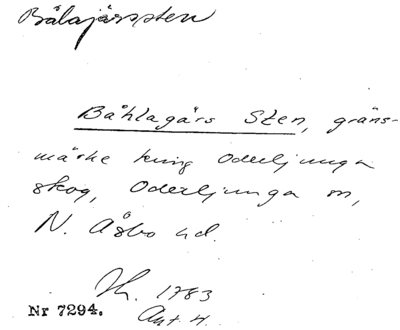 Bålajärsten
Båhlagärs Sten, gräns-
märke kring Oderljunga
skog, Oderljunga sn,
N. Åsbo hd.
1783
Nr 7294.
Akt 4.